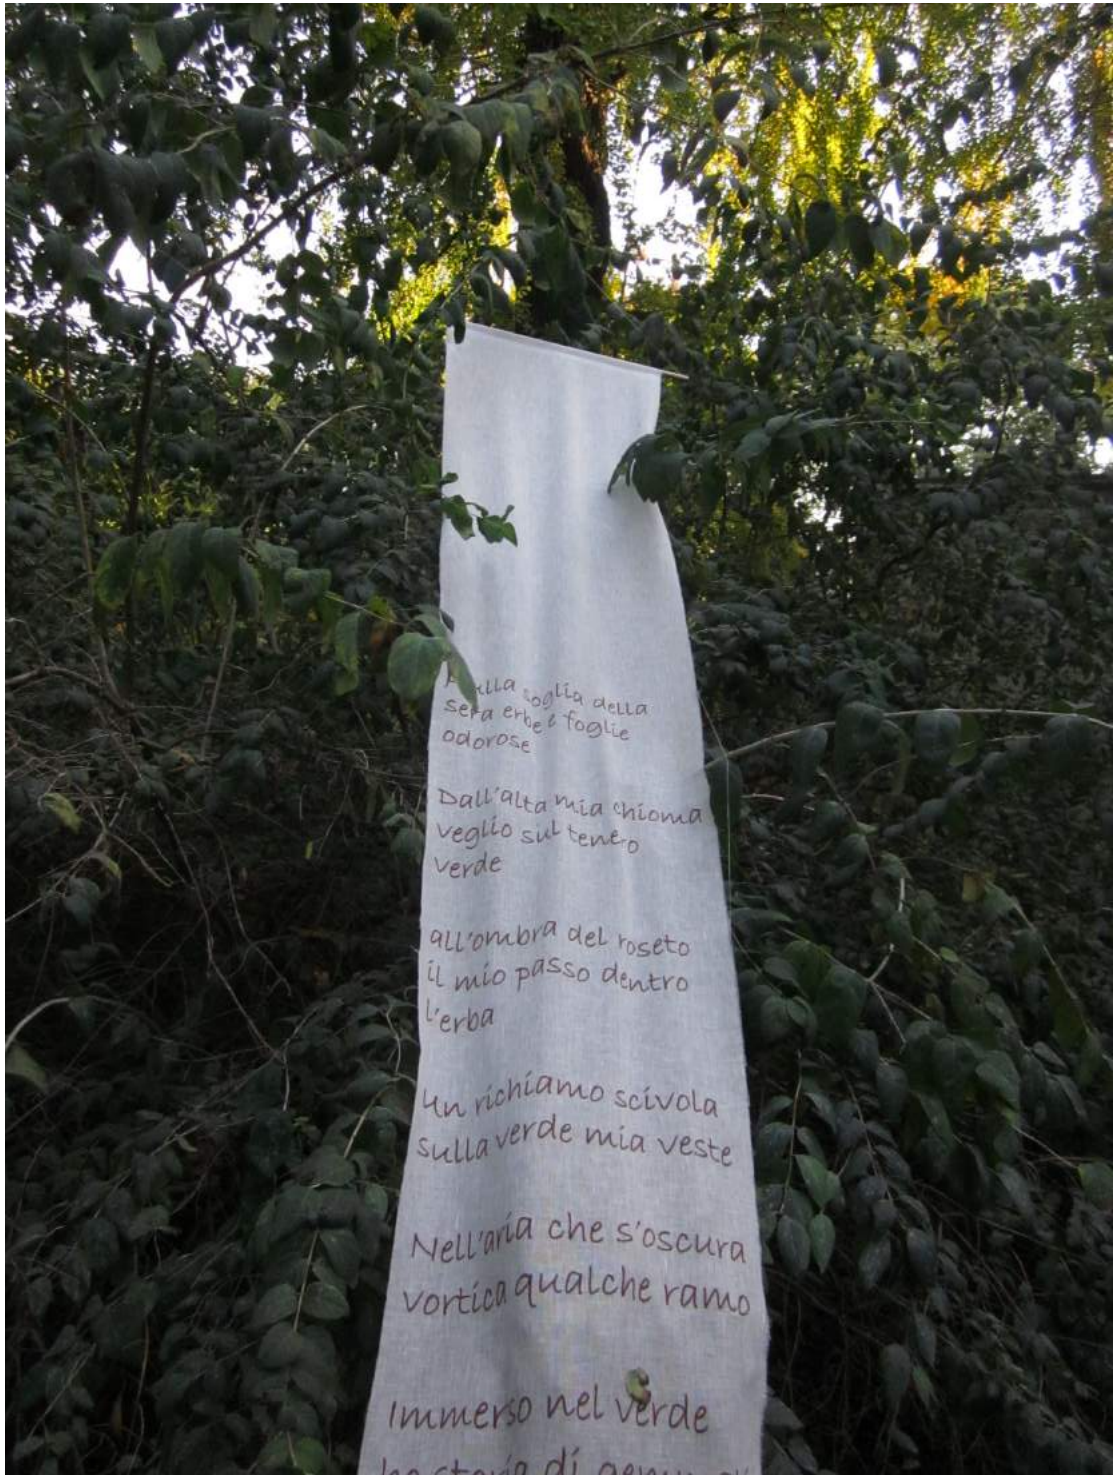 soglia della
sera erbe e foglie
odorose
Dall'alta mia chioma
veglio sul tenero
verde
all'ombra del roseto
il mio passo dentro
l'erba
Un richiamo scivola
sulla verde mia veste
Nell'aria che s'oscura
vortica qualche ramo
Immerso nel verde
ho storia di